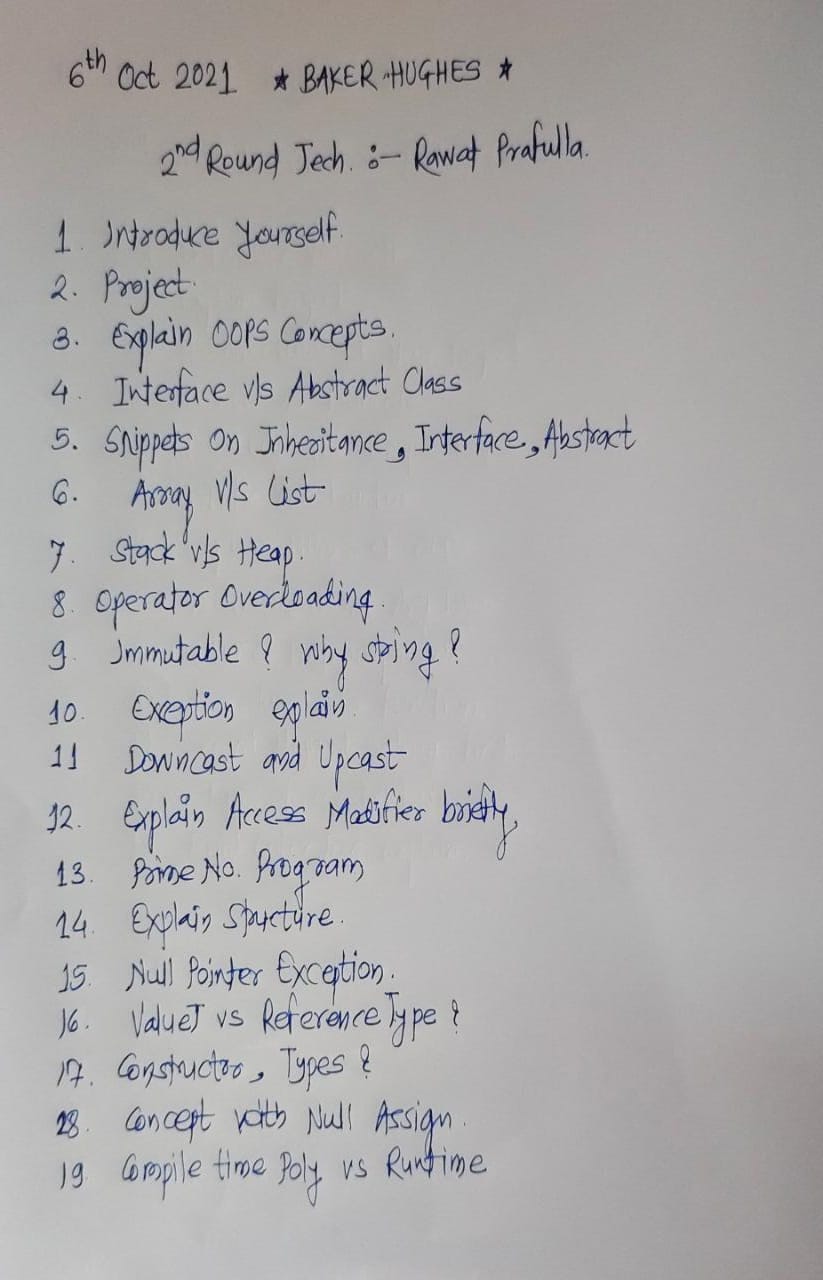 6th Oct 2021 ★ BAKER HUGHES ★
2nd Round Tech. :- Rawat Prafulla.
1. Introduce Yourself.
2. Project.
3. Explain OOPS Concepts.
4. Interface v/s Abstract Class
5. Snippets On Inheritance, Interface, Abstract
6. Array v/s List
7. Stack v/s Heap.
8. Operator Overloading.
9. Immutable ? Why string ?
10. Exception explain.
11 Downcast and Upcast
12. Explain Access Modifier briefly,
13. Prime No. Program
14. Explain Structure.
15. Null Pointer Exception.
16. ValueT vs Reference Type ?
17. Constructor, Types ?
18. Concept with Null Assign.
19 Compile time Poly vs Runtime